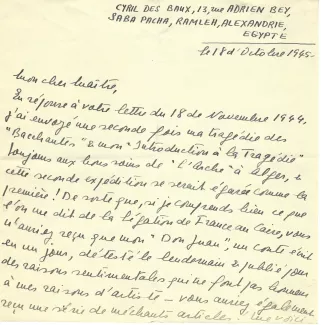 CYRIL DES BAUX, 13, rue ADRIEN BEY,
SABA PACHA, RAMLEH, ALEXANDRIE,
EGYPTE
le 18 d'Octobre 1945
Mon cher Maître,
En réponse à votre lettre du 18 de Novembre 1944,
j'ai envoyé une seconde fois ma tragédie des
"Bacchantes" & mon "Introduction à la Tragédie"
toujours aux bons soins de "l'Arche" à Alger, &
cette seconde expédition se serait égarée comme la
première! De sorte que, si je comprends bien ce que
l'on me dit de la Légation de France au Caire, vous
n'auriez reçu que mon "Don Juan", un conte écrit
en un jour, détesté le lendemain & publié pour
des raisons sentimentales qui ne font pas honneur
à mes raisons d'artiste – vous auriez également
reçu une série de méchants articles!